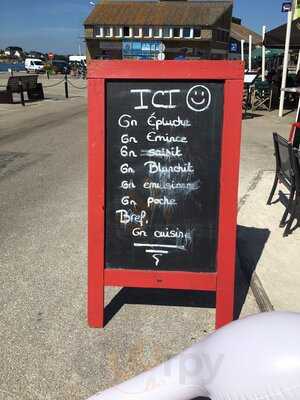 ICI
On Épluche
On Emince
On saisit
On Blanchit
On emulsionne
On poche
Bref,
On cuisine